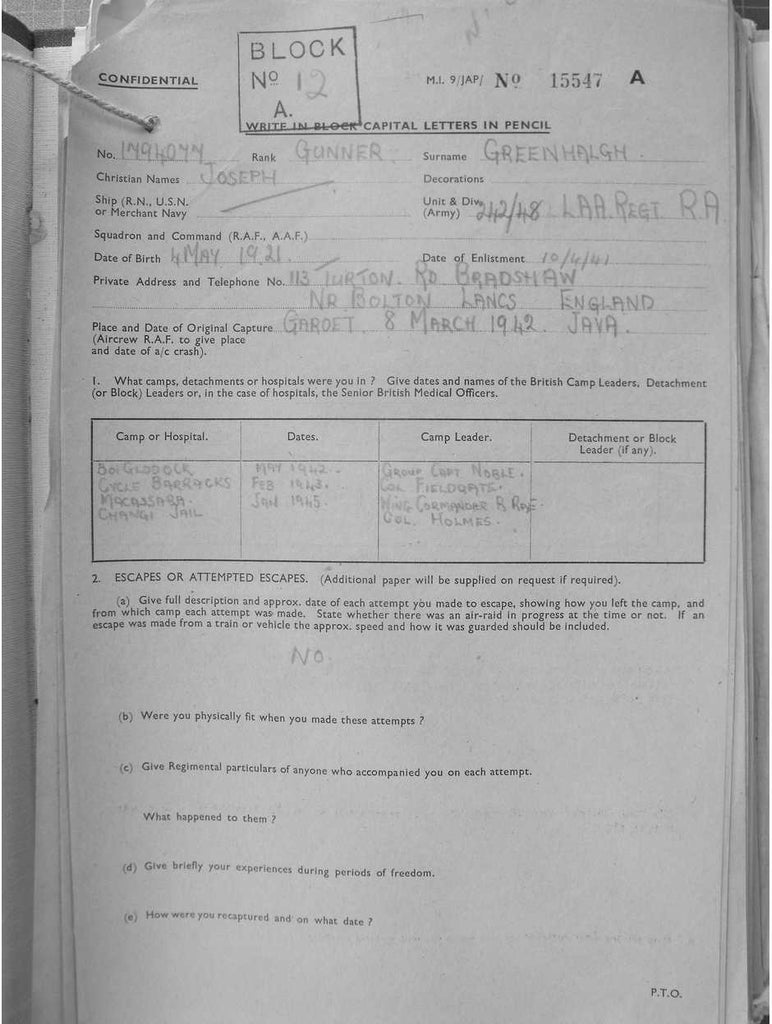 BLOCK
Nº 12
A.
CONFIDENTIAL
M.I. 9/JAP/ Nº 15547 A
WRITE IN BLOCK CAPITAL LETTERS IN PENCIL
No. 1794077 Rank GUNNER Surname GREENHALGH.
Christian Names JOSEPH Decorations
Ship (R.N., U.S.N.
or Merchant Navy
Unit & Div.
(Army) 242/48 LAA. REGT R.A
Squadron and Command (R.A.F., A.A.F.)
Date of Birth 4 MAY 1921. Date of Enlistment 10/4/41
Private Address and Telephone No. 113 TURTON. RD BRADSHAW
NR BOLTON LANCS ENGLAND
Place and Date of Original Capture GAROET 8 MARCH 1942. JAVA.
(Aircrew R.A.F. to give place
and date of a/c crash).
1. What camps, detachments or hospitals were you in ? Give dates and names of the British Camp Leaders, Detachment
(or Block) Leaders or, in the case of hospitals, the Senior British Medical Officers.
Camp or Hospital. Dates. Camp Leader. Detachment or Block
Leader (if any).
BOIGLODOCK MAY 1942. GROUP CAPT NOBLE.
CYCLE BARRACKS FEB 1943. COL FIELDGATE.
MACASSARA. JAN 1945. WING COMMANDER
CHANGI JAIL COL. HOLMES.
2. ESCAPES OR ATTEMPTED ESCAPES. (Additional paper will be supplied on request if required).
(a) Give full description and approx. date of each attempt you made to escape, showing how you left the camp, and
from which camp each attempt was made. State whether there was an air-raid in progress at the time or not. If an
escape was made from a train or vehicle the approx. speed and how it was guarded should be included.
NO.
(b) Were you physically fit when you made these attempts ?
(c) Give Regimental particulars of anyone who accompanied you on each attempt.
What happened to them ?
(d) Give briefly your experiences during periods of freedom.
(e) How were you recaptured and on what date ?
P.T.O.